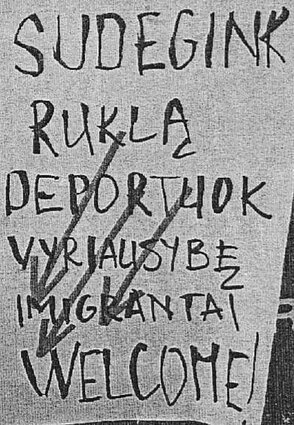 SUDEGINK
RUKLĄ
DEPORTUOK
VYRIAUSYBĘ
IMIGRANTAI
WELCOME!